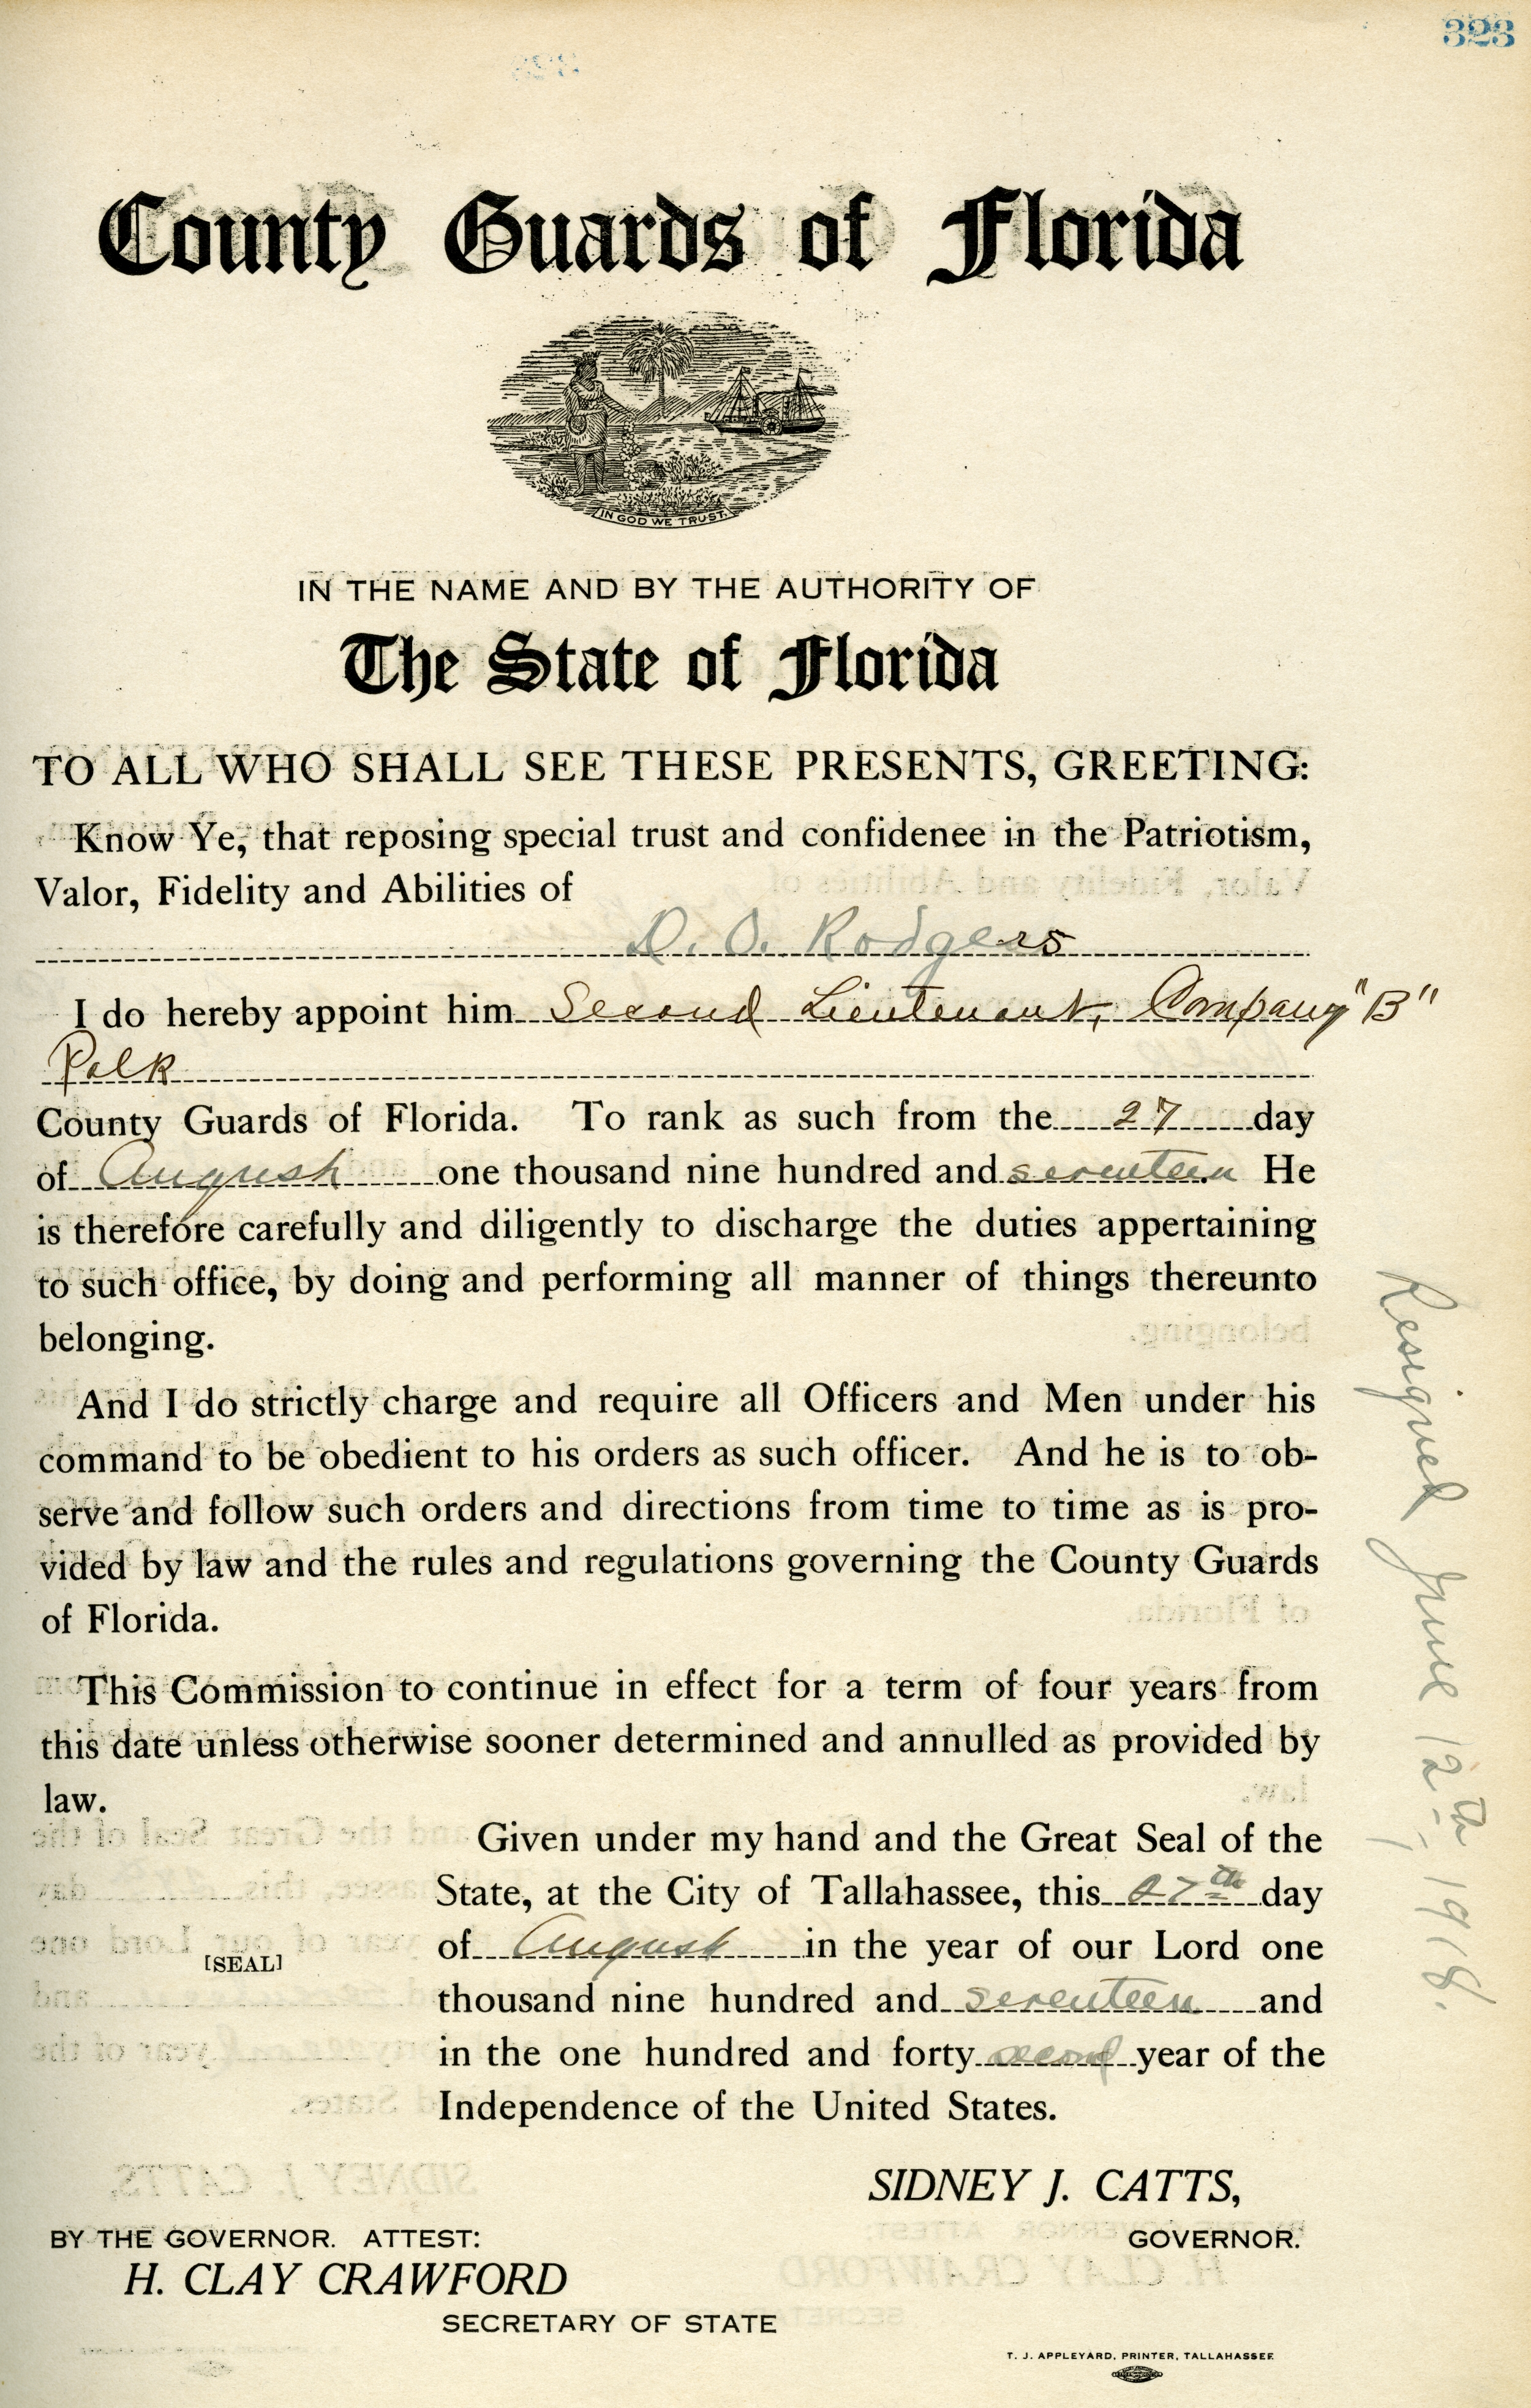 323
County Guards of Florida
IN GOD WE TRUST.
IN THE NAME AND BY THE AUTHORITY OF
The State of Florida
TO ALL WHO SHALL SEE THESE PRESENTS, GREETING:
Know Ye, that reposing special trust and confidenee in the Patriotism,
Valor, Fidelity and Abilities of
D. O. Rodgers
I do hereby appoint him Second Lieutenant, Company "B"
Polk
County Guards of Florida. To rank as such from the 27 day
of August one thousand nine hundred and seventeen He
is therefore carefully and diligently to discharge the duties appertaining
to such office, by doing and performing all manner of things thereunto
belonging.
And I do strictly charge and require all Officers and Men under his
command to be obedient to his orders as such officer. And he is to ob-
serve and follow such orders and directions from time to time as is pro-
vided by law and the rules and regulations governing the County Guards
of Florida.
This Commission to continue in effect for a term of four years from
this date unless otherwise sooner determined and annulled as provided by
law.
Given under my hand and the Great Seal of the
State, at the City of Tallahassee, this 27th day
of August in the year of our Lord one
[SEAL]
thousand nine hundred and seventeen and
in the one hundred and forty second year of the
Independence of the United States.
SIDNEY J. CATTS,
GOVERNOR.
BY THE GOVERNOR. ATTEST:
H. CLAY CRAWFORD
SECRETARY OF STATE
T. J. APPLEYARD, PRINTER, TALLAHASSEE
Resigned June 12th, 1918.